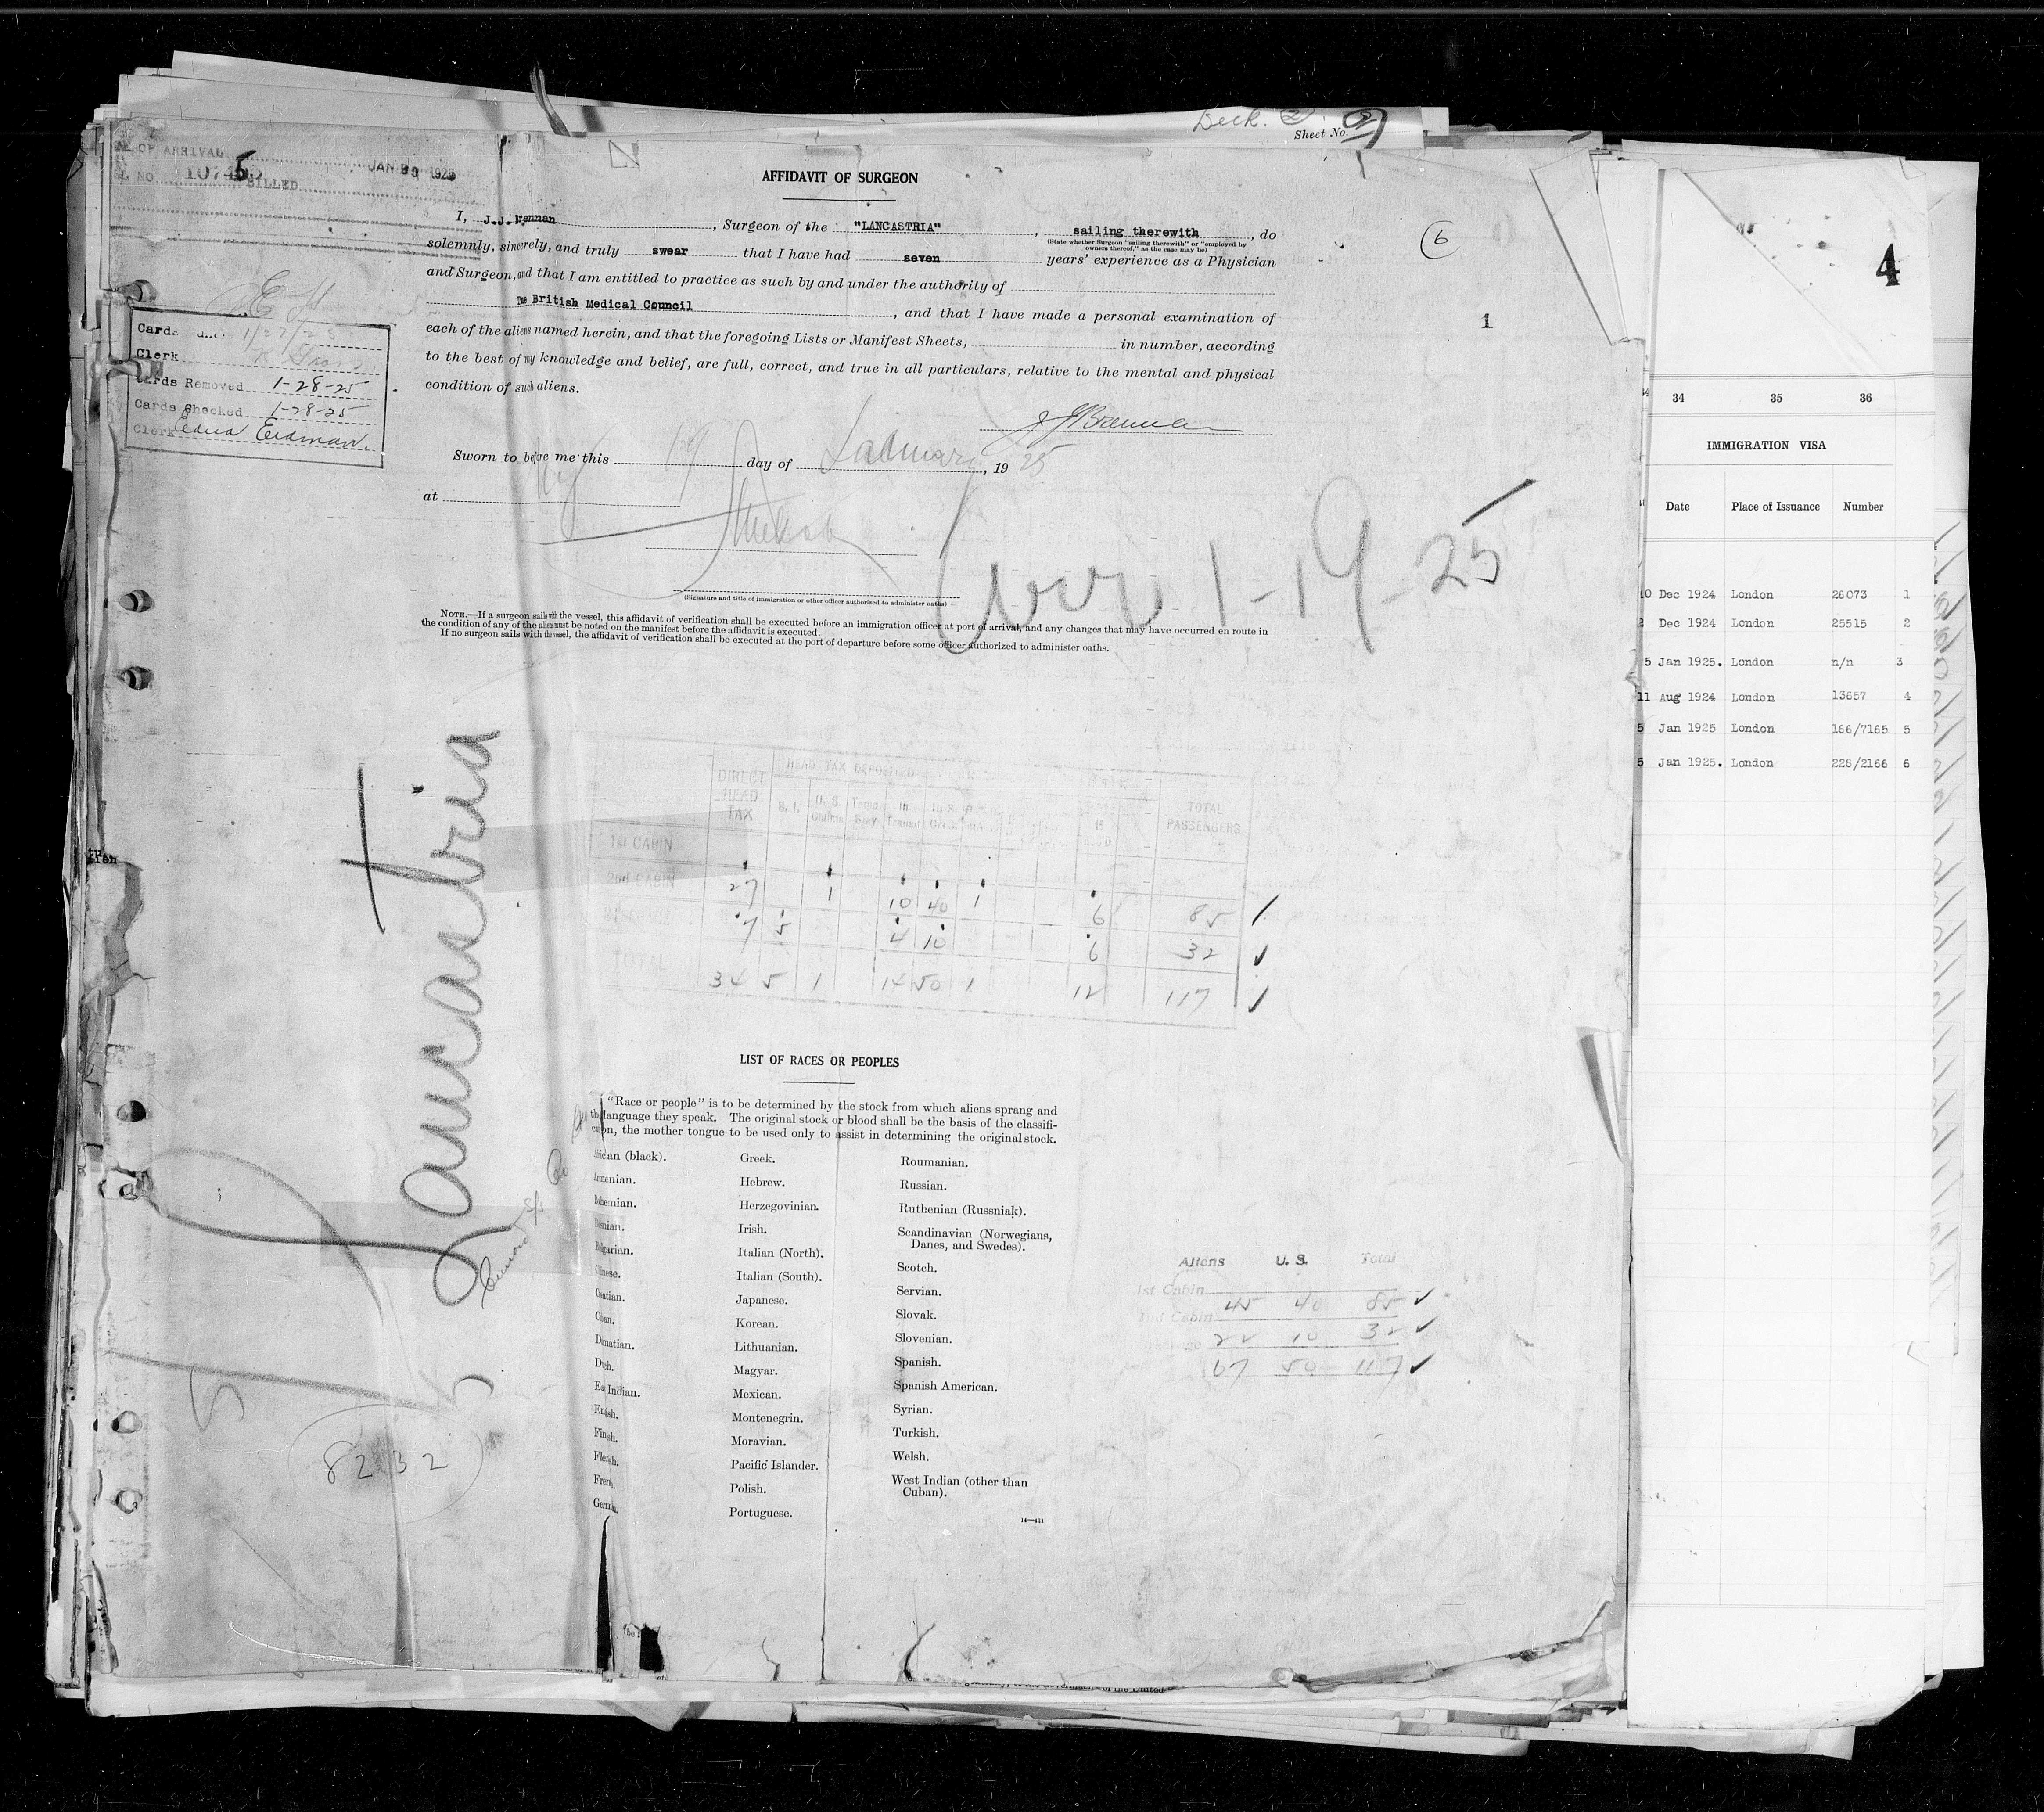 Sheet No.
OF ARRIVAL
JAN 1925
BILLED
AFFIDAVIT OF SURGEON
I, J.J. Brennan, Surgeon of the "LANCASTRIA", sailing therewith, do
(State whether Surgeon "sailing therewith" or "employed by
owners thereof," as the case may be)
solemnly, sincerely, and truly swear that I have had seven years' experience as a Physician
and Surgeon, and that I am entitled to practice as such by and under the authority of
The British Medical Council, and that I have made a personal examination of
each of the aliens named herein, and that the foregoing Lists or Manifest Sheets, in number, according
to the best of my knowledge and belief, are full, correct, and true in all particulars, relative to the mental and physical
condition of such aliens.
J J Brennan
Sworn to before me this 19 day of January, 1925
at
(Signature and title of immigration or other officer authorized to administer oaths)
NOTE.—If a surgeon sails with the vessel, this affidavit of verification shall be executed before an immigration officer at port of arrival, and any changes that may have occurred en route in
the condition of any of the aliens must be noted on the manifest before the affidavit is executed.
If no surgeon sails with the vessel, the affidavit of verification shall be executed at the port of departure before some officer authorized to administer oaths.
6
1
4
Clerk
Cards Removed 1-28-25
Cards Checked 1-28-25
Clerk Edna Erdman
1-19-25
Lancastria
8232
DIRECT HEAD TAX
HEAD TAX DEPOSITED
TOTAL PASSENGERS
1st CABIN
2nd CABIN 27 1 10 40 1 6 85
7 5 4 10 6 32
TOTAL 34 5 1 14 50 1 12 117
LIST OF RACES OR PEOPLES
"Race or people" is to be determined by the stock from which aliens sprang and
the language they speak. The original stock or blood shall be the basis of the classifi-
cation, the mother tongue to be used only to assist in determining the original stock.
African (black).
Armenian.
Bohemian.
Bosnian.
Bulgarian.
Chinese.
Croatian.
Cuban.
Dalmatian.
Dutch.
East Indian.
English.
Finnish.
Flemish.
French.
German.
Greek.
Hebrew.
Herzegovinian.
Irish.
Italian (North).
Italian (South).
Japanese.
Korean.
Lithuanian.
Magyar.
Mexican.
Montenegrin.
Moravian.
Pacific Islander.
Polish.
Portuguese.
Roumanian.
Russian.
Ruthenian (Russniak).
Scandinavian (Norwegians,
Danes, and Swedes).
Scotch.
Servian.
Slovak.
Slovenian.
Spanish.
Spanish American.
Syrian.
Turkish.
Welsh.
West Indian (other than
Cuban).
Aliens U. S. Total
1st Cabin
2nd Cabin 45 40 85
22 10 32
67 50 117
34 35 36
IMMIGRATION VISA
Date Place of Issuance Number
10 Dec 1924 London 26073 1
2 Dec 1924 London 25515 2
5 Jan 1925. London n/n 3
11 Aug 1924 London 13657 4
5 Jan 1925 London 166/7165 5
5 Jan 1925. London 228/2166 6